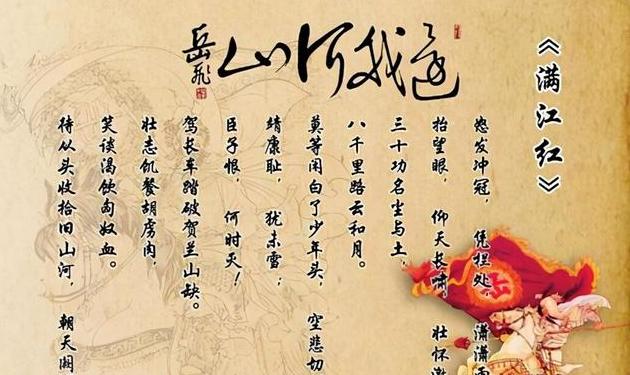 《满江红》
還我河山
岳飛
怒发冲冠， 凭栏处， 潇潇
抬望眼， 仰天长啸， 壮怀激
三十功名尘与土，
八千里路云和月。
莫等闲白了少年头， 空悲切
靖康耻， 犹未雪；
臣子恨， 何时灭！
驾长车踏破贺兰山缺。
壮志饥餐胡虏肉，
笑谈渴饮匈奴血。
待从头收拾旧山河， 朝天阙